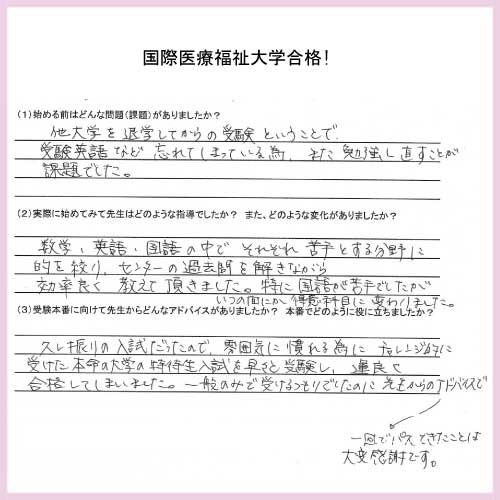 国際医療福祉大学合格！
（１）始める前はどんな問題（課題）がありましたか？
他大学を退学してからの受験ということで、
受験英語など忘れてしまっている為、また勉強し直すことが
課題でした。
（２）実際に始めてみて先生はどのような指導でしたか？ また、どのような変化がありましたか？
数学、英語、国語の中でそれぞれ苦手とする分野に
的を絞り、センターの過去問を解きながら
効率良く教えて頂きました。特に国語が苦手でしたが
いつの間にか得意科目に変わりました。
（３）受験本番に向けて先生からどんなアドバイスがありましたか？ 本番でどのように役に立ちましたか？
久し振りの入試だったので、雰囲気に慣れる為にチャレンジ的に
受けた本命の大学の特待生入試を早々と受験し、運良く
合格してしまいました。一般のみで受けるつもりでしたのに先生からのアドバイスで
一回でパスできたことは
大変感謝です。